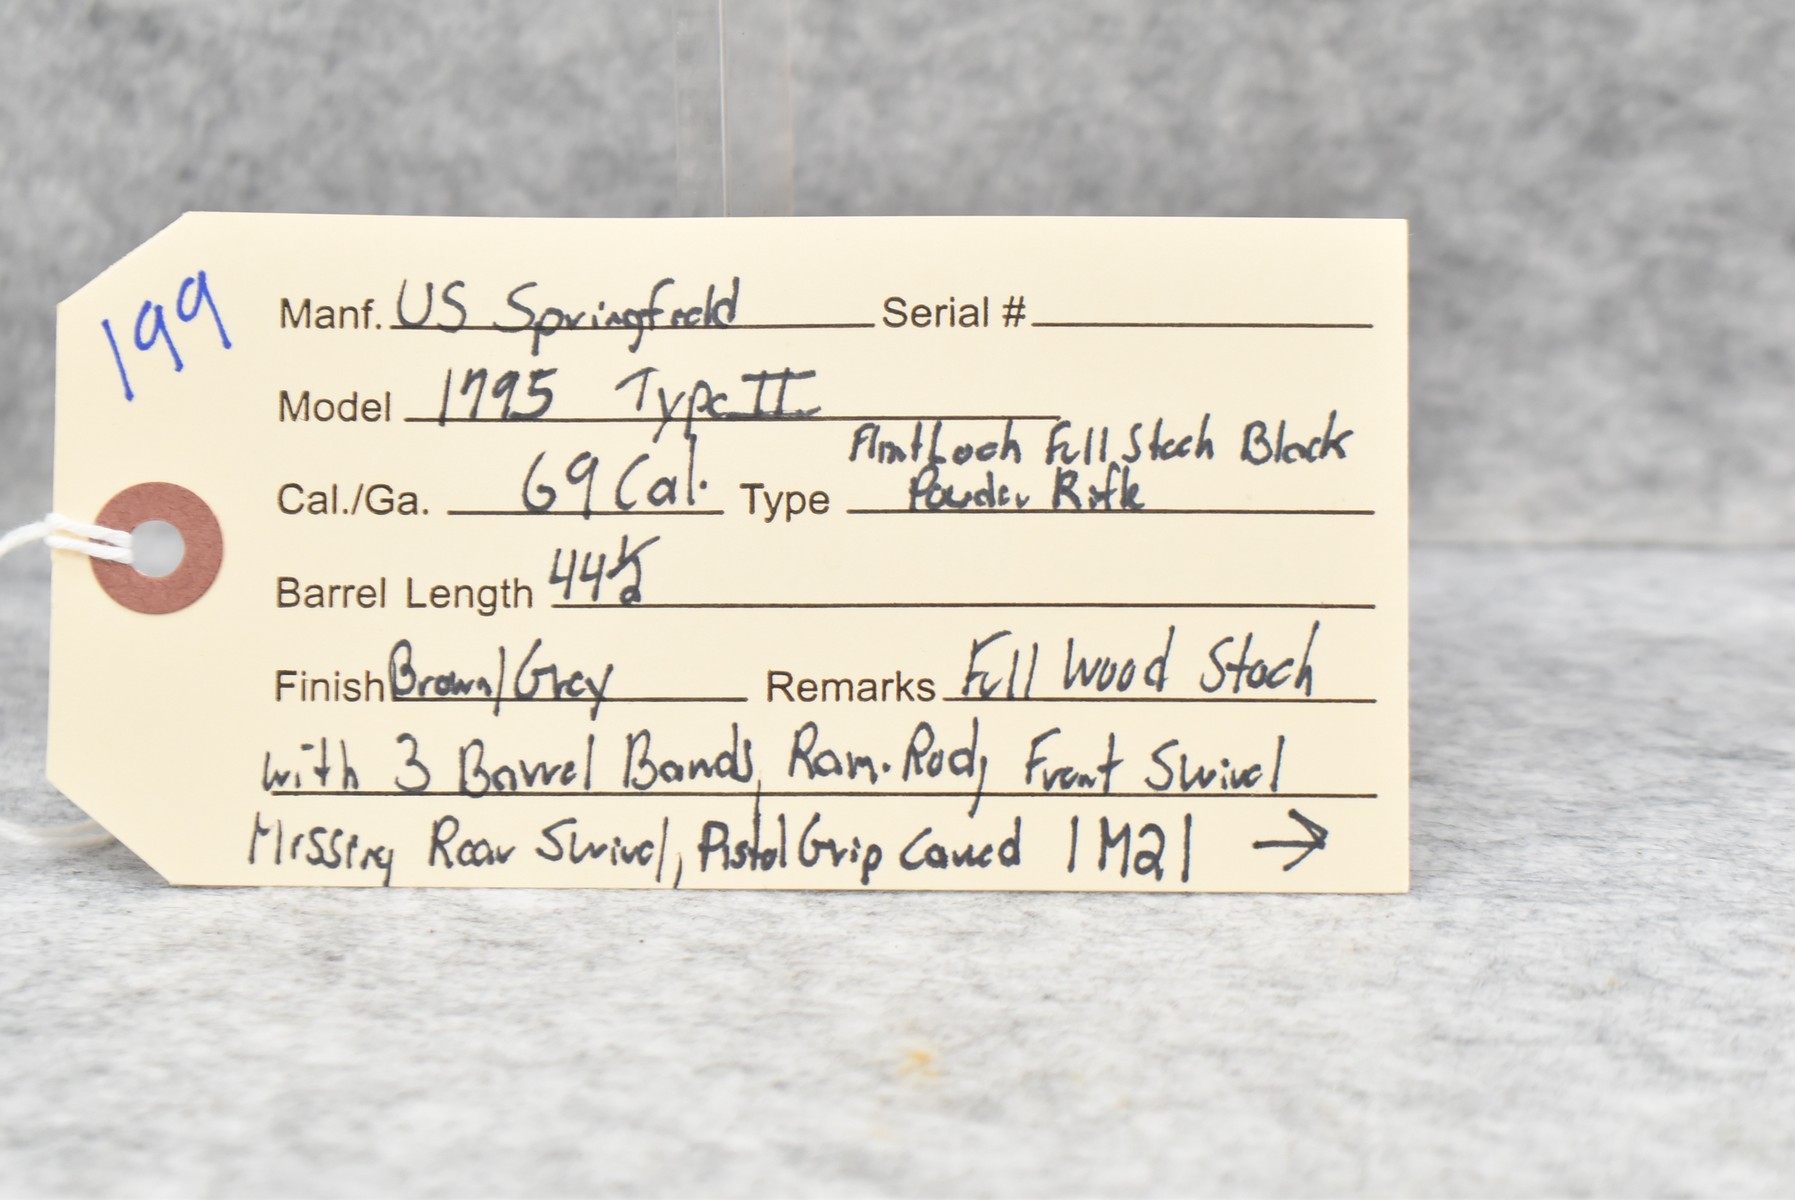 199
Manf. US Springfield Serial #
Model 1795 Type II
Cal./Ga. 69 Cal. Type FlintLock Full Stock Black
Powder Rifle
Barrel Length 44 1/2
Finish Brown/Grey Remarks Full Wood Stock
with 3 Barrel Bands, Ram.Rod, Front Swivel
Missing Rear Swivel, Pistol Grip Carved |M2| →